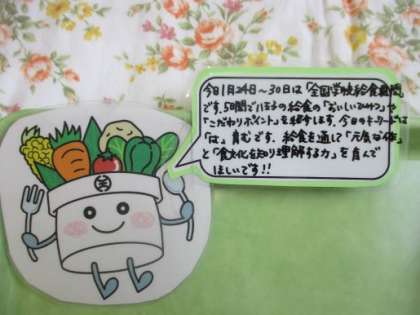 今日1月24日～30日は「全国学校給食週間」
です。5日間で八王子の給食の「おいしいヒミツ」や
「こだわりポイント」を紹介します。今日のキーワードは
「は」育むです。給食を通して「元気な体」
と「食文化を知り理解する力」を育んで
ほしいです!!